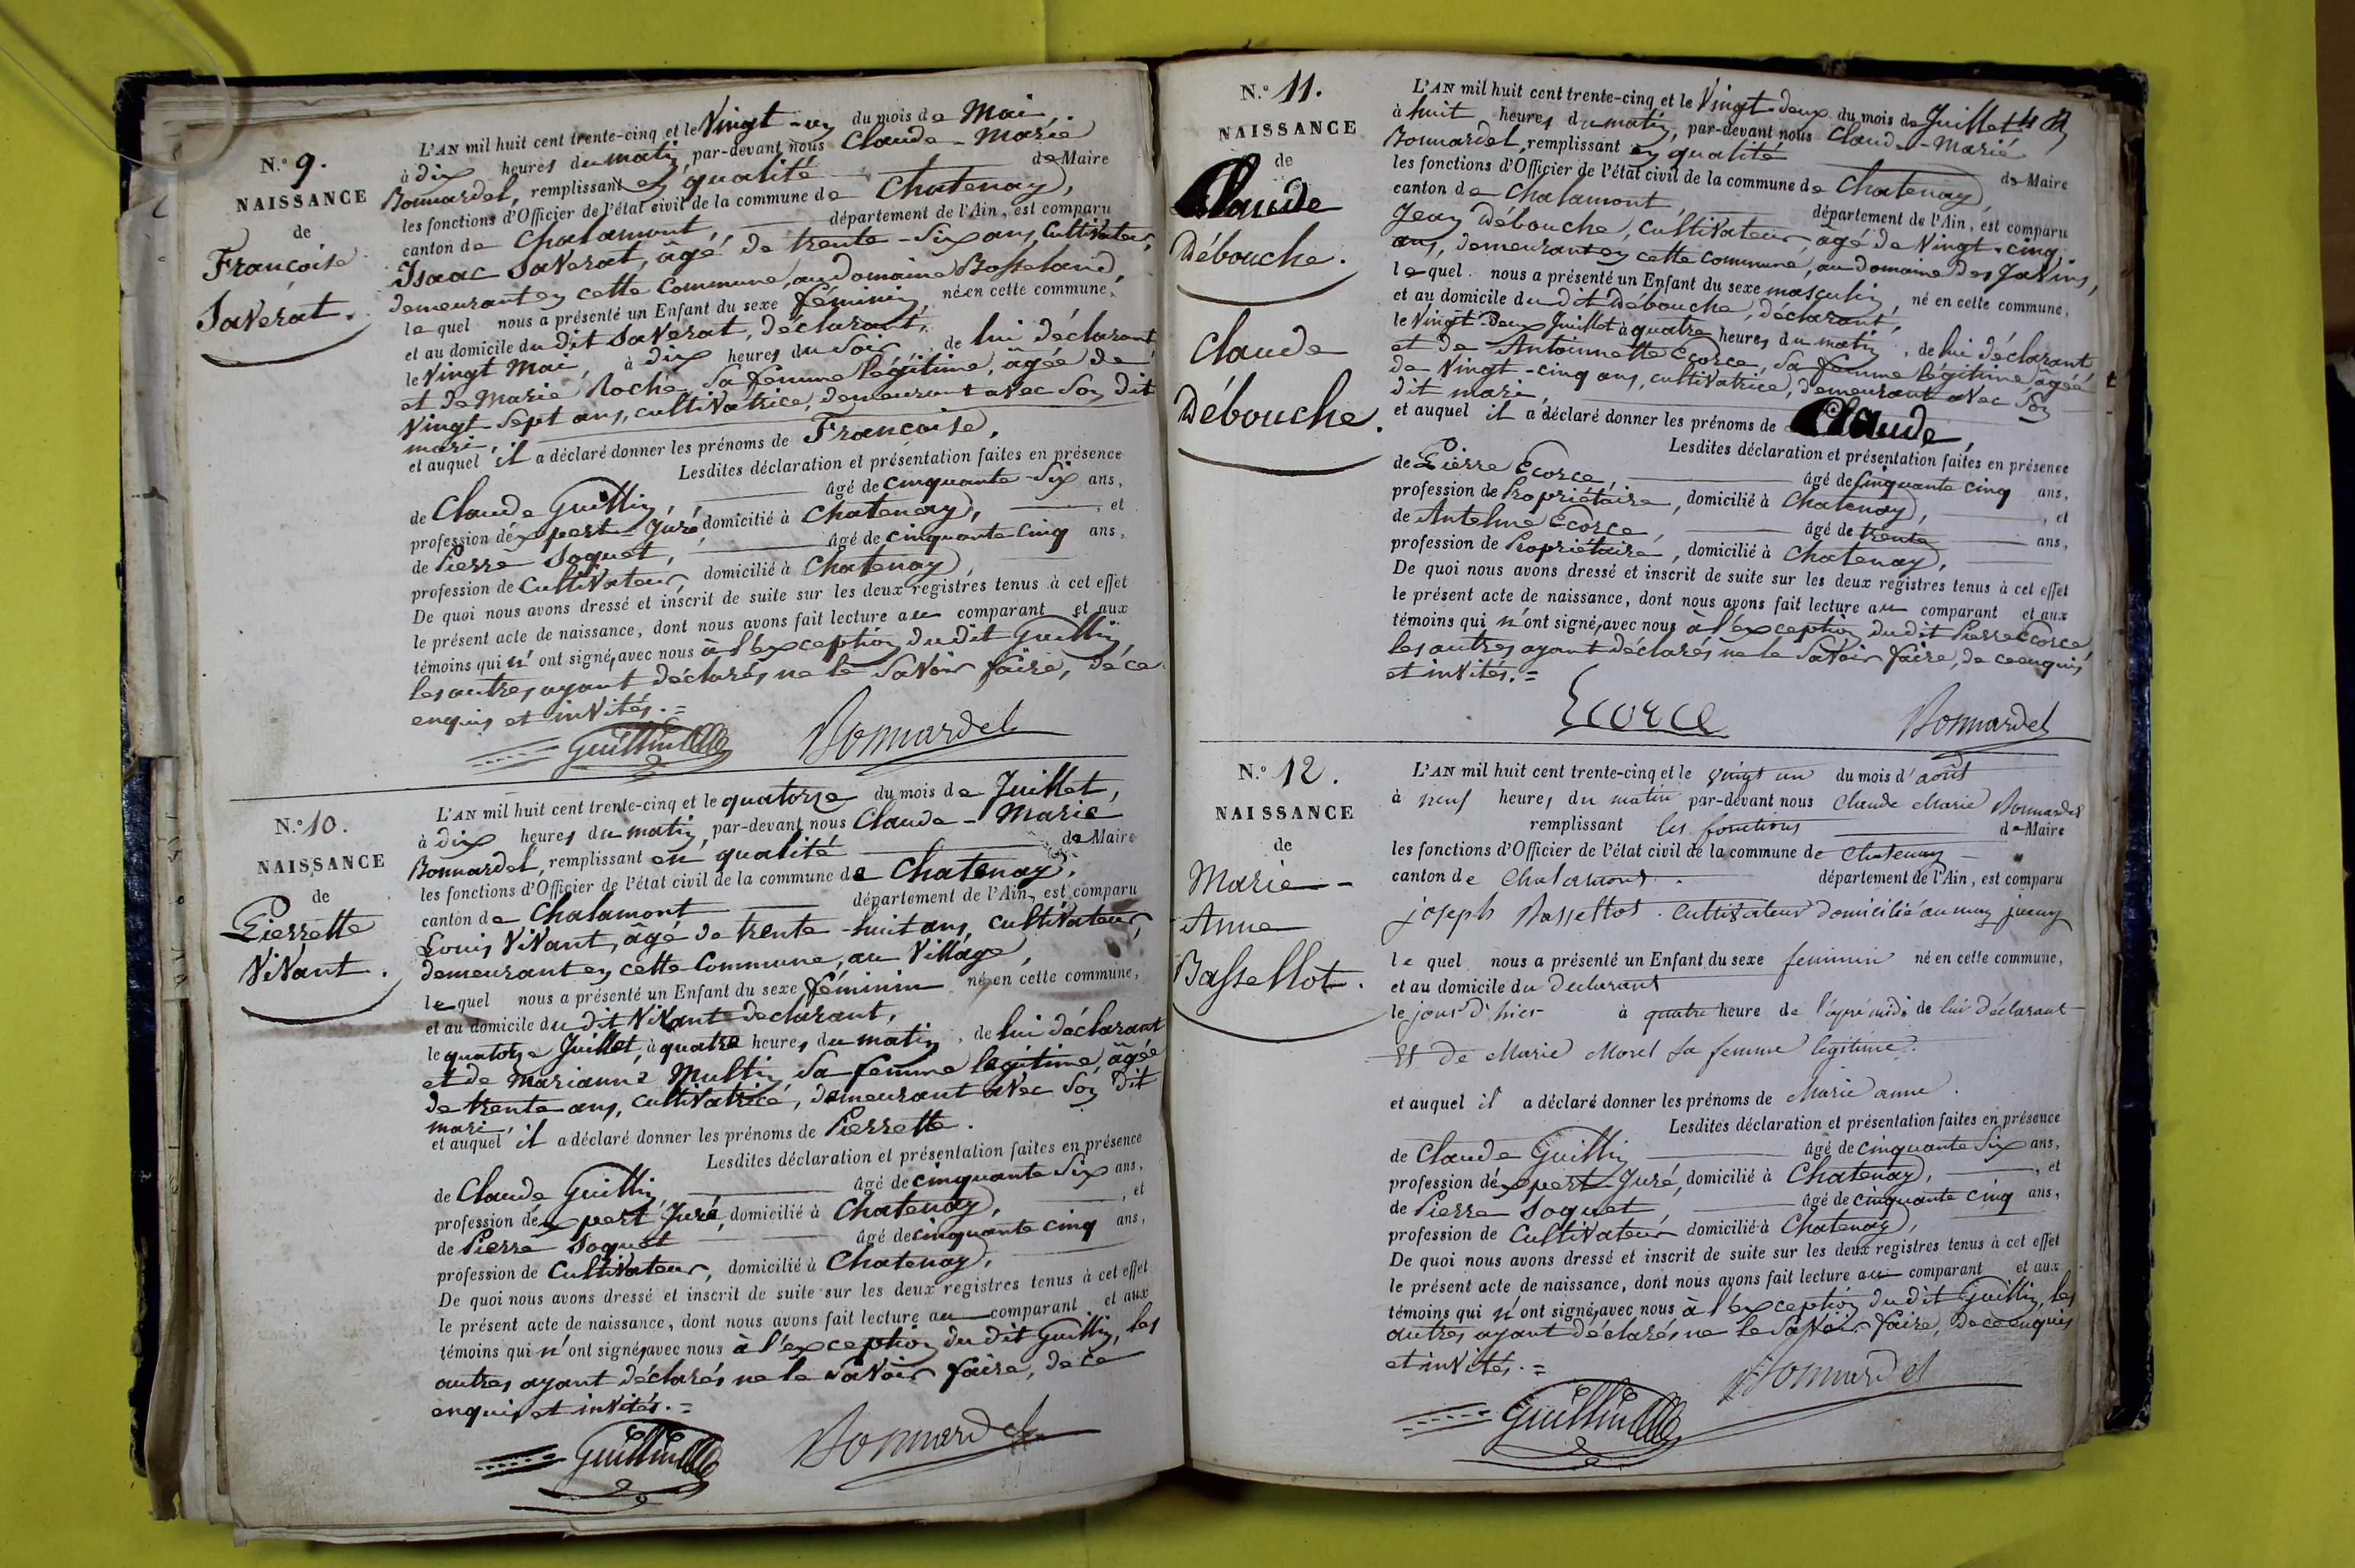 N.° 9.
NAISSANCE
de
Françoise
Saverat.
L'AN mil huit cent trente-cinq et le Vingt-un du mois de Mai,
à dix heures du matin, par-devant nous Claude-Marie
Bonnardel, remplissant en qualité de Maire
les fonctions d'Officier de l'état civil de la commune de Chatenay,
canton de Chalamont, département de l'Ain, est comparu
Isaac Saverat, âgé de trente-six ans, Cultivateur,
demeurant en cette Commune, au domaine Bosseland,
lequel nous a présenté un Enfant du sexe féminin, né en cette commune,
et au domicile du dit Saverat, déclarant,
le Vingt Mai, à dix heures du Soir, de lui déclarant
et de Marie Roche, Sa femme légitime, âgée de
Vingt-Sept ans, cultivatrice, demeurant avec Son dit
mari,
et auquel il a déclaré donner les prénoms de Françoise,
Lesdites déclaration et présentation faites en présence
de Claude Guillin, âgé de cinquante-Six ans,
profession d'expert-Juré, domicilié à Chatenay, et
de Pierre Soquet, âgé de cinquante Cinq ans,
profession de Cultivateur, domicilié à Chatenay,
De quoi nous avons dressé et inscrit de suite sur les deux registres tenus à cet effet
le présent acte de naissance, dont nous avons fait lecture au comparant et aux
témoins qui n'ont signé, avec nous à l'exception du dit Guillin
les autres ayant déclarés ne le Savoir faire, de ce
enquis et invités.=
Guillin Bonnardel
N.° 10.
NAISSANCE
de
Pierrette
Vivant.
L'AN mil huit cent trente-cinq et le quatorze du mois de Juillet,
à dix heures du matin, par-devant nous Claude-Marie
Bonnardel, remplissant en qualité de Maire
les fonctions d'Officier de l'état civil de la commune de Chatenay,
canton de Chalamont département de l'Ain, est comparu
Louis Vivant, âgé de trente-huit ans, cultivateur,
demeurant en cette Commune, au Village,
lequel nous a présenté un Enfant du sexe féminin né en cette commune,
et au domicile du dit Vivant declarant,
le quatorze Juillet, à quatre heures du matin, de lui déclarant
et de Marianne Multin Sa femme legitime âgée
de trente ans, cultivatrice, demeurant avec Son dit
mari,
et auquel il a déclaré donner les prénoms de Pierrette.
Lesdites déclaration et présentation faites en présence
de Claude Guillin, âgé de cinquante Six ans,
profession d'expert Juré, domicilié à Chatenay, et
de Pierre Soquet âgé de cinquante cinq ans,
profession de Cultivateur, domicilié à Chatenay,
De quoi nous avons dressé et inscrit de suite sur les deux registres tenus à cet effet
le présent acte de naissance, dont nous avons fait lecture au comparant et aux
témoins qui n'ont signé, avec nous à l'exception du dit Guillin, les
autres ayant déclarés ne le Savoir faire, de ce
enquis et invités.=
Guillin Bonnardel
N.° 11.
NAISSANCE
de
Claude
Débouche.
Claude
Débouche.
L'AN mil huit cent trente-cinq et le Vingt-deux du mois de Juillet
à huit heures du matin, par-devant nous Claude-Marie
Bonnardel, remplissant en qualité de Maire
les fonctions d'Officier de l'état civil de la commune de Chatenay,
canton de Chalamont, département de l'Ain, est comparu
Jean Débouche, cultivateur, âgé de Vingt-cinq
ans, demeurant en cette commune, au domaine des Javins,
lequel nous a présenté un Enfant du sexe masculin, né en cette commune,
et au domicile du dit Débouche, déclarant,
le Vingt-Deux Juillet à quatre heures du matin, de lui déclarant
et de Antoinnette Ecorce, Sa femme légitime âgée
de Vingt-cinq ans, cultivatrice, demeurant avec Son
dit mari,
et auquel il a déclaré donner les prénoms de Claude,
Lesdites déclaration et présentation faites en présence
de Pierre Ecorce, âgé de Cinquante cinq ans,
profession de Propriétaire, domicilié à Chatenay, et
de Antelme Ecorce, âgé de trente ans,
profession de Propriétaire, domicilié à Chatenay,
De quoi nous avons dressé et inscrit de suite sur les deux registres tenus à cet effet
le présent acte de naissance, dont nous avons fait lecture au comparant et aux
témoins qui n'ont signé, avec nous à l'exception du dit Pierre Ecorce,
les autres ayant déclarés ne le Savoir faire, de ce enquis
et invités.=
Ecorce Bonnardel
N.° 12.
NAISSANCE
de
Marie-
Anne
Bassellot.
L'AN mil huit cent trente-cinq et le vingt un du mois d'août
à neuf heures du matin par-devant nous Claude Marie Bonnardel
remplissant les fonctions de Maire
les fonctions d'Officier de l'état civil de la commune de Chatenay
canton de Chalamont. département de l'Ain, est comparu
joseph Bassellot. Cultivateur domicilié au
lequel nous a présenté un Enfant du sexe feminin né en cette commune,
et au domicile du declarant
le jour d'hier à quatre heure de l'apré midi de lui déclarant
et de Marie Morel sa femme legitime.
et auquel il a déclaré donner les prénoms de Marie anne.
Lesdites déclaration et présentation faites en présence
de Claude Guillin âgé de cinquante Six ans,
profession d'expert-Juré, domicilié à Chatenay, et
de Pierre Soquet, âgé de cinquante cinq ans,
profession de Cultivateur domicilié à Chatenay,
De quoi nous avons dressé et inscrit de suite sur les deux registres tenus à cet effet
le présent acte de naissance, dont nous avons fait lecture au comparant et aux
témoins qui n'ont signé, avec nous à l'exception du dit Guillin, les
autres ayant déclarés ne le Savoir faire, de ce enquis
et invités.=
Guillin Bonnardel